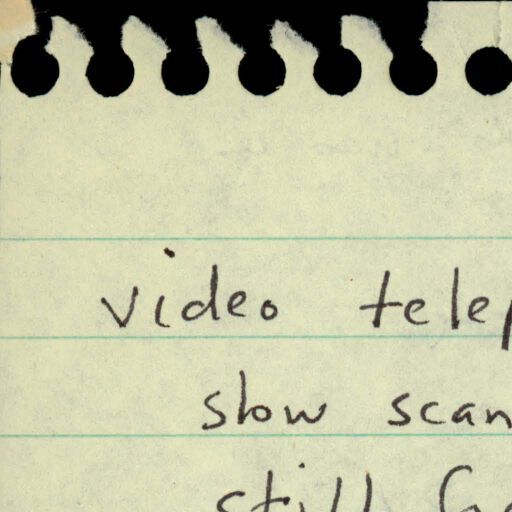 video tele
slow scan
still